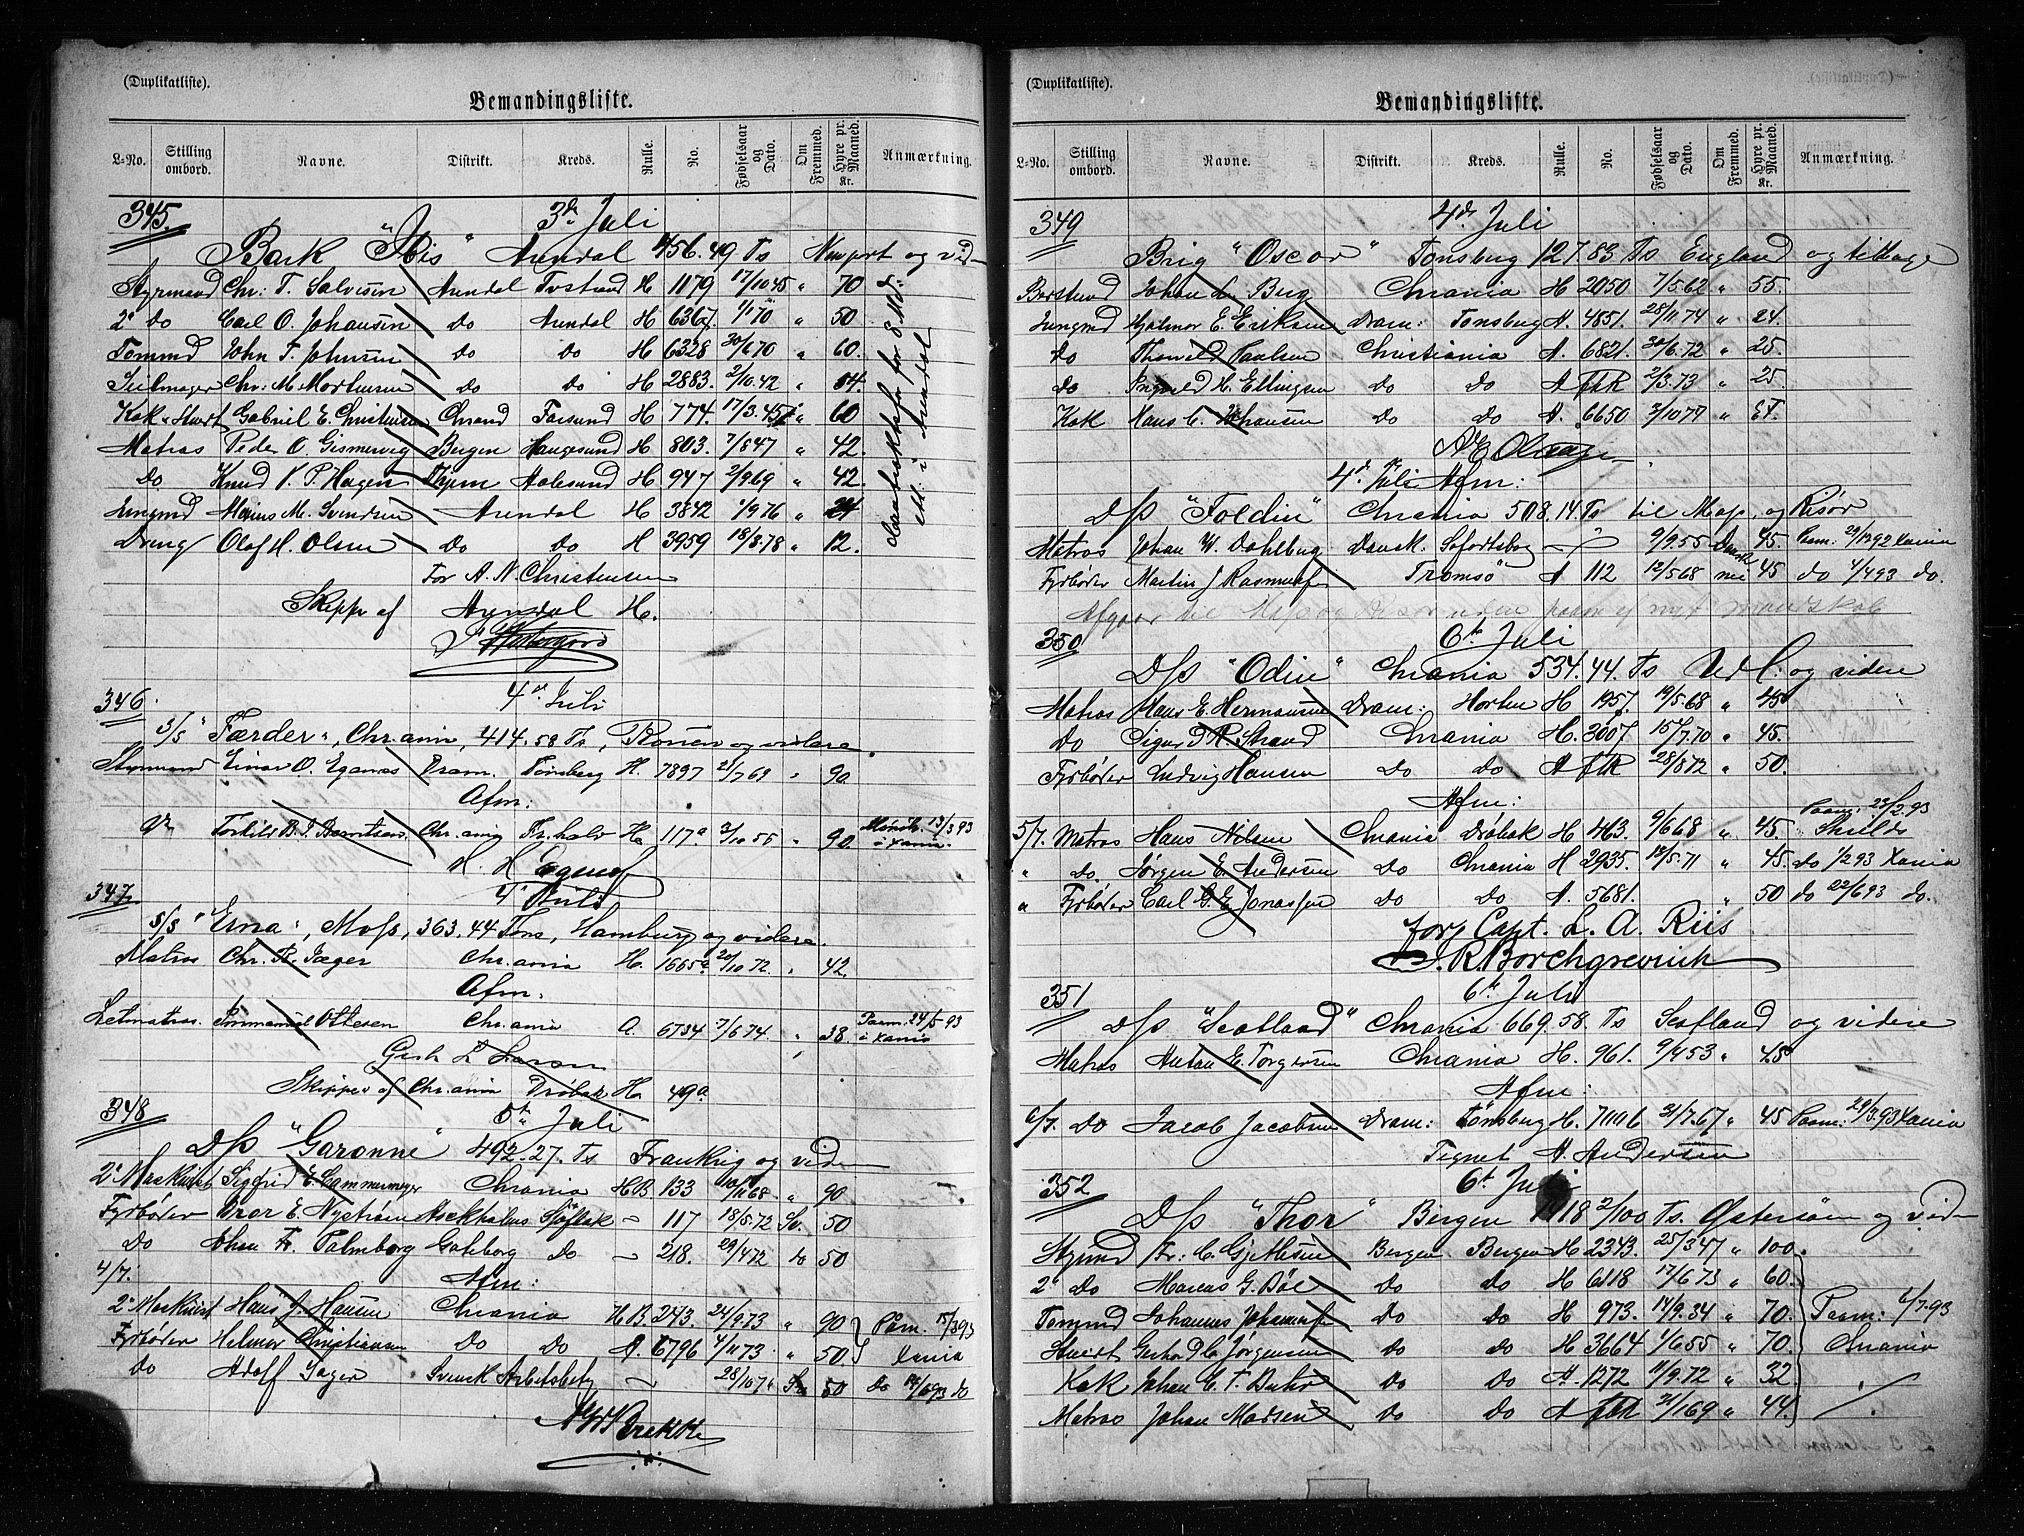 (Duplikatliste).
Bemandingsliste.
L-No. Stilling ombord. Navne. Distrikt. Kreds. Rulle. No. Fødselsaar og Dato. Om Fremmed. Hyre pr. Maaned. Kr. Anmærkning.
345. 3de Juli
Bark "Ibis" Arendal 456.49 Ts Newport og vid
Styrmand Chr: T. Salvesen Arendal Tvstrand H 1179 17/10 45 " 70
2 Do Carl O. Johansen Do Arendal H 6367 1/1 70 " 50
Tømmd John T. Johnsen Do Do H 6328 30/6 70 " 60.
Seilmager Chr: M. Mortensen Do Do H 2883. 2/10.42 "
Kok & Stuert Gabriel E. Christensen Chrsand Farsund H 774. 17/3.45 " 60
Matros Peder O. Gismervig Bergen Haugesund H 803. 7/8 47 " 42.
Do Knud V. P. Hagen Thjem Aalesund H 947 2/9 69 " 42.
Jungmd M. Svendsen Arendal H 3842 1/9 76 " 24
Dreng Olaf H. Olsen Do Do H 3959 18/8.78 " 12.
For A. N. Christensen
Skipper af Arendal H.
346. 4de Juli
S/S "Færder", Chr.ania, 414.58 Ts, Rouen og videre
Styrmand Einar O. Eganæs Dram. Tønsberg H. 7897 21/7 69 " 90
Afm:
Torkild B. J. Berntsen Chr.ania Fr.hald H. 117a 3/10 55 " 90 Mønstr. 13/3 93 i Xania.
347. 4 Juli
S/S "Erna", Moss, 363.44 Tons, Hamburg og videre.
Matros Chr. Jæger Chr.ania H. 1665a 20/10 72. " 42
Afm.
Letmatros. Immanuel Ottesen Chr.ania A. 6734 7/6 74 " 38 Paam. 24/5 93 i Xania
L. Larsen
Skipper af Chr.ania Drøbak H. 49a
348 5te Juli
D/S "Garonne" 492.27. Ts Frankrig og videre
2 Maskinist Sigfrid E. Cammermeyer Chrania H.B. 133 " 90
Fyrbøder Bror E. Nystrøm Stockholms Sjøfolk – 117 18/5.72 Sv. 50
Do Johan Fr. Palmborg Goteborg Do – 218. 29/4 72 do 50
4/7. Afm:
2 Maskinist Hans J. Hansen Chrania H.B. 243. 24/9.73 " 90 Paam. 15/3 93
Fyrbøder Helmer Christiansen Do Do A. 6796 4/11 73. " 50 Xania
do Adolf Sager Svensk Arbetsbetg – 28/10 7 Sv 50 Do 14/6 93 do
Brekke
(Duplikatliste).
Bemandingsliste.
L-No. Stilling ombord. Navne. Distrikt. Kreds. Rulle. No. Fødselsaar og Dato. Om Fremmed. Hyre pr. Maaned. Kr. Anmærkning.
349 4de Juli
Brig "Oscar" Tonsberg 127.83 Ts England og tilbage
Bestmd Johan L. Berg Chrania H 2050 7/5 62 " 55.
Jungmd Hjalmar E. Eriksen Dram: Tonsberg A. 4851. 28/11 74 " 24.
do Thorvald Paulsen Christiania A. 6821. 30/6.72 " 25.
do Ingvald H. Ellingsen Do Do A ftR 2/3.73 " 25
Kok Hans C. Johansen Do Do A. 6650 3/10 77 "
4de Juli Afm:
D/S "Foldin" Chrania 508.14 Ts til Moss og Risør
Matros Johan W. Dahlberg Dansk. Søfartsbog – 9/9.55 Dansk 45. Paam: 29/12 92 Xania
Fyrbøder Martin J. Rasmussen Tromsö A 112 12/5 68 nei 45 do 1/4 93 do.
Afgaar til Moss og Risør uden paam af nyt mandskab
350 6te Juli
D/S "Odin" Chrania 534.44. Ts og videre
Matros Hans E. Hermansen Dram: Horten H 1957. 19/5.68 " 45
do Sigurd R. Strand Chrania H. 3007. 15/7.70 " 45.
Fyrbøder Ludvig Hansen Do do A ftR 28/8 72 " 50.
Afm:
5/7. Matros Hans Nilsen Chrania Drøbak H 463. 9/6 68 " 45. Paam: 23/2.93 Shields
" do. Jørgen E. Andersen Do Chrania H 2935. 18/5.71 " 45. do 1/2 93 Xania
" Fyrbøder Carl G. E. Jonassen Do Do A. 5681. " 50 do 22/6 93 do.
for Capt. L. A. Riis
R. Borchgrevinck
351 6te Juli
D/S "Scotland" Chrania 669.58. Ts Scotland og videre
Matros Anton E. Torgersen Chrania H. 961. 9/4 53 " 45
Afm:
6/7. Do Jacob Jacobsen Dram: Tönsberg H. 21/7.67 " 45 Paam: 28/3.93 Xania
Tegnet A. Andersen
352 6te Juli
D/S "Thor" Bergen 1418 2/100 Ts. Østersøen og videre
Stymd Fr: C. Gjertsen Bergen Bergen H 2343. 25/3 47 " 100.
2 do Marcus G. Böe Do Do H 6118 17/6 73 " 60.
Tømmd Johannes Johannessen Do Do H 973. 14/9.34 " 70. Paam: 6/7.93
Stuert Gerhard C. Jørgensen Do Do H 3664 1/6 55 " 70. Chrania
Kok Johan C. F. Do Do A. 1272 11/9.72 " 32.
Matros Johan Madsen Do Do A ftR 21/1 69 " 44.